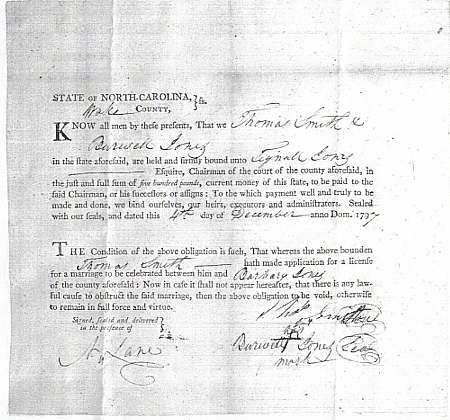 STATE OF NORTH-CAROLINA, } ss.
Wake COUNTY,
KNOW all men by these presents, That we Thomas Smith &
Burwell Jones
in the state aforesaid, are held and firmly bound unto Tignall Jones
Esquire, Chairman of the court of the county aforesaid, in
the just and full sum of five hundred pounds, current money of this state, to be paid to the
said Chairman, or his successors or assigns: To the which payment well and truly to be
made and done, we bind ourselves, our heirs, executors and administrators. Sealed
with our seals, and dated this 4th day of December anno Dom. 1797
THE Condition of the above obligation is such, That whereas the above bounden
Thomas Smith hath made application for a license
for a marriage to be celebrated between him and Barbary Jones
of the county aforesaid: Now in case it shall not appear hereafter, that there is any law-
ful cause to obstruct the said marriage, then the above obligation to be void, otherwise
to remain in full force and virtue.
Signed, sealed and delivered }
in the presence of
Thos Smith Seal
his
Burwell Jones Seal
mark
H Lane